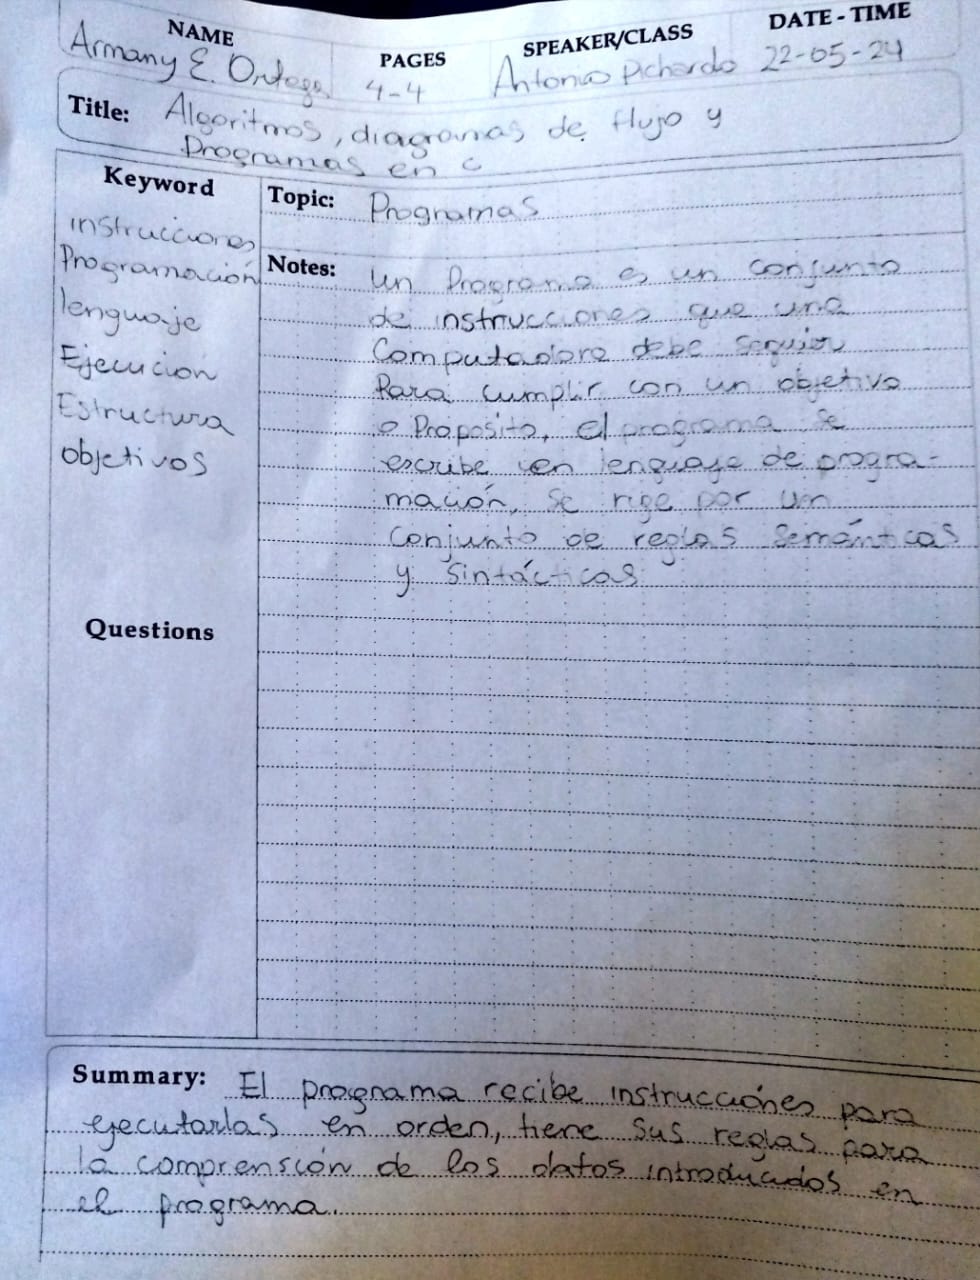 NAME PAGES SPEAKER/CLASS DATE - TIME
Armany E. Ortega 4-4 Antonio Pichardo 22-05-24
Title: Algoritmos, diagramas de flujo y
Programas en c
Keyword
instrucciones
Programación
lenguaje
Ejecucion
Estructura
objetivos
Questions
Topic: Programas
Notes: un Programa es un conjunto
de instrucciones que una
Computadora debe seguir
Para cumplir con un objetivo
o Proposito, el programa se
escribe en lenguaje de progra-
mación, se rige por un
Conjunto de reglas Semánticas
y Sintácticas
Summary: El programa recibe instrucciónes para
ejecutarlas en orden, tiene sus reglas para
la comprensión de los datos introducidos en
el programa.